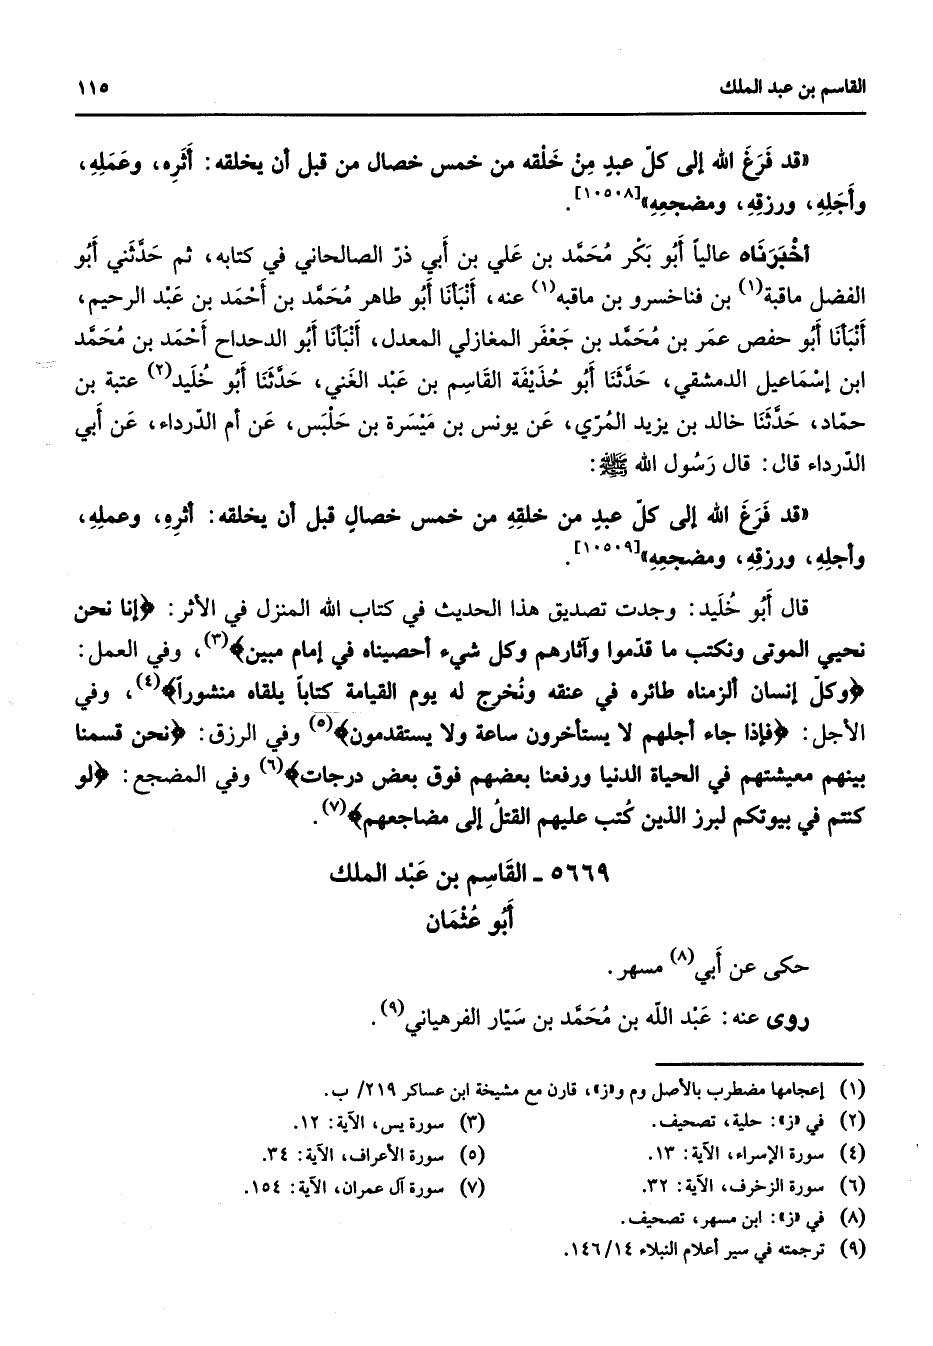 القاسم بن عبد الملك ١١٥
«قد فَرَغَ الله إلى كلّ عبدٍ مِنْ خَلْقه من خمس خصال من قبل أن يخلقه: أَثَرِه، وعَمَلِهِ،
وأَجَلِهِ، ورزقِهِ، ومضجعِهِ»[١٠٥٠٨].
أَخْبَرَنَاه عالياً أَبُو بَكْر مُحَمَّد بن عَلي بن أَبي ذرّ الصالحاني في كتابه، ثم حَدَّثَني أَبُو
الفضل ماقبة(١) بن فناخسرو بن ماقبه(١) عنه، أَنْبَأنَا أَبُو طاهر مُحَمَّد بن أَحْمَد بن عَبْد الرحيم،
أَنْبَأنَا أَبُو حفص عمَر بن مُحَمَّد بن جَعْفَر المغازلي المعدل، أَنْبَأنَا أَبُو الدحداح أَحْمَد بن مُحَمَّد
ابن إسْمَاعيل الدمشقي، حَدَّثَنَا أَبُو حُذَيْفَة القَاسِم بن عَبْد الغَني، حَدَّثَنَا أَبُو خُلَيد(٢) عتبة بن
حمّاد، حَدَّثَنَا خالد بن يزيد المُرّي، عَن يونس بن مَيْسَرة بن حَلْبَس، عَن أم الدّرداء، عَن أَبي
الدّرداء قال: قال رَسُول الله ﷺ:
«قد فَرَغَ الله إلى كلّ عبدٍ من خلقِهِ من خمس خصالٍ قبل أن يخلقه: أثرِهِ، وعملِهِ،
وأجلِهِ، ورزقِهِ، ومضجعِهِ»[١٠٥٠٩].
قال أَبُو خُلَيد: وجدت تصديق هذا الحديث في كتاب الله المنزل في الأثر: ﴿إنا نحن
نحيي الموتى ونكتب ما قدّموا وآثارهم وكل شيء أحصيناه في إمام مبين﴾(٣)، وفي العمل:
﴿وكلّ إنسان ألزمناه طائره في عنقه ونُخرج له يوم القيامة كتاباً يلقاه منشوراً﴾(٤)، وفي
الأجل: ﴿فإذا جاء أجلهم لا يستأخرون ساعة ولا يستقدمون﴾(٥) وفي الرزق: ﴿نحن قسمنا
بينهم معيشتهم في الحياة الدنيا ورفعنا بعضهم فوق بعض درجات﴾(٦) وفي المضجع: ﴿لو
كنتم في بيوتكم لبرز الذين كُتب عليهم القتلُ إلى مضاجعهم﴾(٧).
٥٦٦٩ - القَاسِم بن عَبْد الملك
أَبُو عُثْمَان
حكى عن أَبي(٨) مسهر.
روى عنه: عَبْد اللّه بن مُحَمَّد بن سَيّار الفرهياني(٩).
(١) إعجامها مضطرب بالأصل وم و«ز»، قارن مع مشيخة ابن عساكر ٢١٩/ ب.
(٢) في «ز»: حلية، تصحيف. (٣) سورة يس، الآية: ١٢.
(٤) سورة الإسراء، الآية: ١٣. (٥) سورة الأعراف، الآية: ٣٤.
(٦) سورة الزخرف، الآية: ٣٢. (٧) سورة آل عمران، الآية: ١٥٤.
(٨) في «ز»: ابن مسهر، تصحيف.
(٩) ترجمته في سير أعلام النبلاء ١٤٦/١٤.